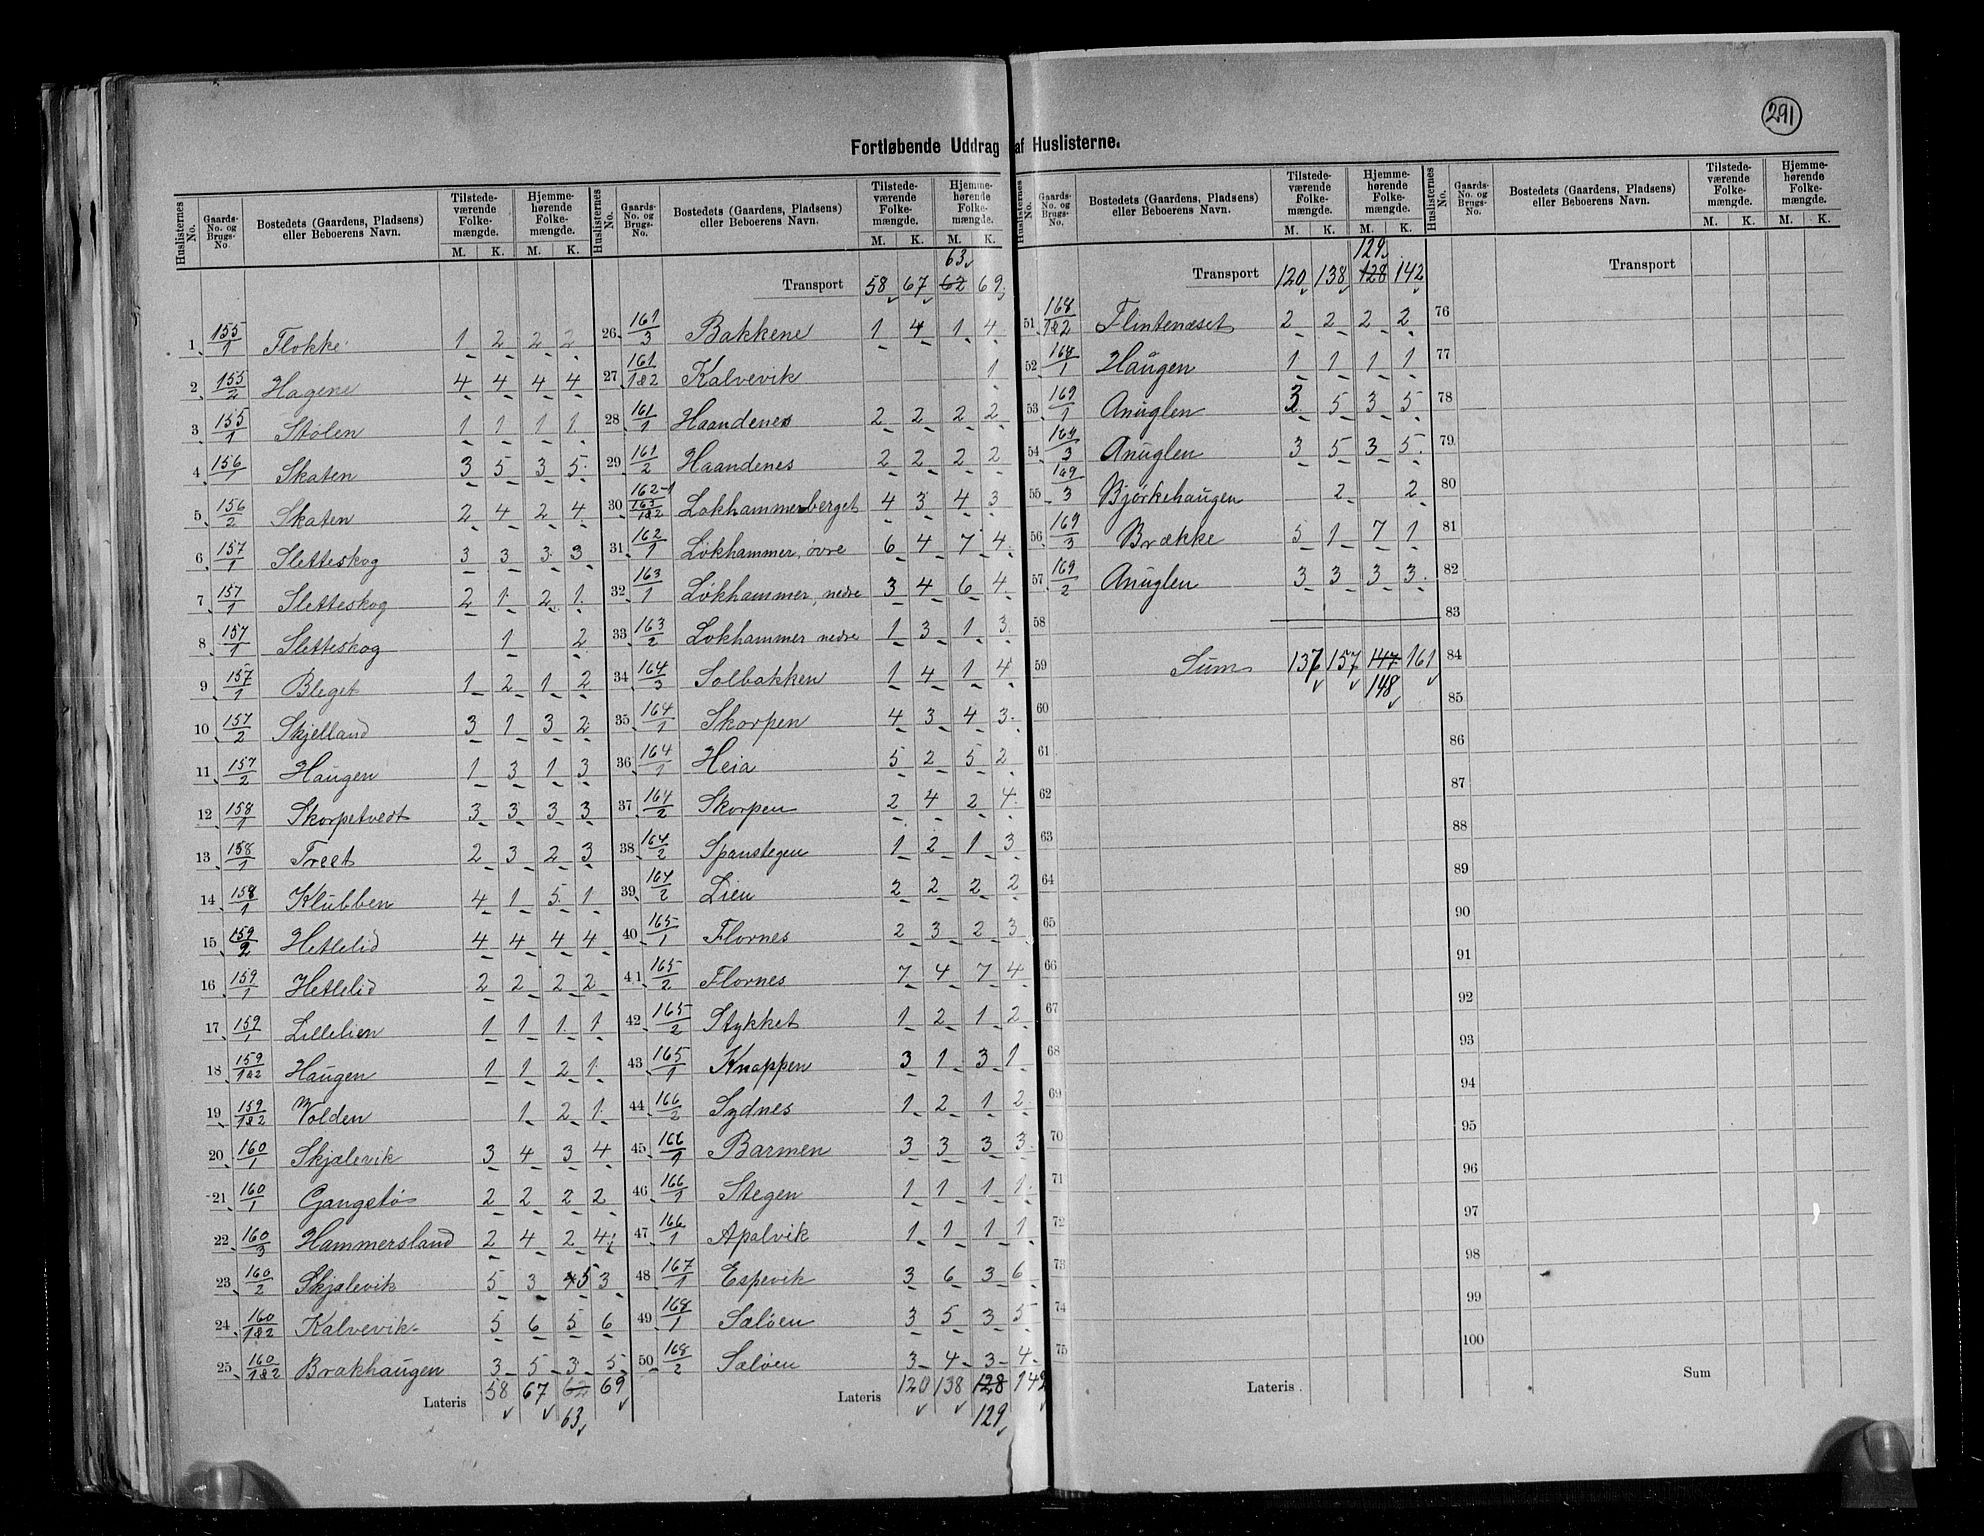 291
Fortløbende Uddrag af Huslisterne.
Huslisternes No. Gaards-No. og Brugs-No. Bostedets (Gaardens, Pladsens) eller Beboerens Navn. Tilstedeværende Folkemængde. M. K. Hjemmehørende Folkemængde. M. K.
1 155/1 Flokke 1 2 2 2
2 155/2 Hagene 4 4 4 4
3 155/1 Stølen 1 1 1 1
4 156/1 Skaten 3 5 3 5
5 156/2 Skaten 2 4 2 4
6 157/1 Sletteskog 3 3 3 3
7 157/1 Sletteskog 2 1 2 1
8 157/1 Sletteskog 1 2
9 157/1 Bleget 1 2 1 2
10 157/2 Skjelland 3 1 3 2
11 157/2 Haugen 1 3 1 3
12 158/1 Skorpetvedt 3 3 3 3
13 158/1 Treet 2 3 2 3
14 158/1 Klubben 4 1 5 1
15 159/2 Hetlelid 4 4 4 4
16 159/1 Hetlelid 2 2 2 2
17 159/1 Lillelien 1 1 1 1
18 159/1&2 Haugen 1 1 2 1
19 159/1&2 Volden 1 2 1
20 160/1 Skjælevik 3 4 3 4
21 160/1 Gangstø 2 2 2 2
22 160/3 Hammersland 2 4 2 4
23 160/2 Skjælevik 5 3 5 3
24 160/1&2 Kalvevik 5 6 5 6
25 160/1&2 Brakhaugen 3 5 3 5
Lateris 58 67 62 69
63
Huslisternes No. Gaards-No. og Brugs-No. Bostedets (Gaardens, Pladsens) eller Beboerens Navn. Tilstedeværende Folkemængde. M. K. Hjemmehørende Folkemængde. M. K.
63
Transport 58 67 62 69
26 161/3 Bakkene 1 4 1 4
27 161/1&2 Kalvevik 1
28 161/1 Haandenes 2 2 2 2
29 161/2 Haandenes 2 2 2 2
30 162-1 163/1&2 Løkhammerberget 4 3 4 3
31 162/1 Løkhammer, øvre 6 4 7 4
32 163/1 Løkhammer, nedre 3 4 6 4
33 163/2 Løkhammer nedre 1 3 1 3
34 164/3 Solbakken 1 4 1 4
35 164/1 Skorpen 4 3 4 3
36 164/1 Heia 5 2 5 2
37 164/2 Skorpen 2 4 2 4
38 164/2 Spanstegen 1 2 1 3
39 164/2 Lien 2 2 2 2
40 165/1 Flornes 2 3 2 3
41 165/2 Flornes 7 4 7 4
42 165/2 Stykket 1 2 1 2
43 165/1 Knappen 3 1 3 1
44 166/2 Sydnes 1 2 1 2
45 166/1 Barmen 3 3 3 3
46 166/1 Stegen 1 1 1 1
47 166/1 Apalvik 1 1 1 1
48 167/1 Espevik 3 6 3 6
49 168/1 Sæløen 3 5 3 5
50 168/2 Sæløen 3 4 3 4
Lateris 120 138 128 142
129
Huslisternes No. Gaards-No. og Brugs-No. Bostedets (Gaardens, Pladsens) eller Beboerens Navn. Tilstedeværende Folkemængde. M. K. Hjemmehørende Folkemængde. M. K.
129
Transport 120 138 128 142
51 168/1&2 Flintenæset 2 2 2 2
52 168/1 Haugen 1 1 1 1
53 169/1 Anuglen 3 5 3 5
54 169/3 Anuglen 3 5 3 5
55 169/3 Bjørkehaugen 2 2
56 169/3 Brække 5 1 7 1
57 169/2 Anuglen 3 3 3 3
58
59 Sum 137 157 147 161
148
60
61
62
63
64
65
66
67
68
69
70
71
72
73
74
75
Lateris.
Huslisternes No. Gaards-No. og Brugs-No. Bostedets (Gaardens, Pladsens) eller Beboerens Navn. Tilstedeværende Folkemængde. M. K. Hjemmehørende Folkemængde. M. K.
Transport
76
77
78
79
80
81
82
83
84
85
86
87
88
89
90
91
92
93
94
95
96
97
98
99
100
Sum